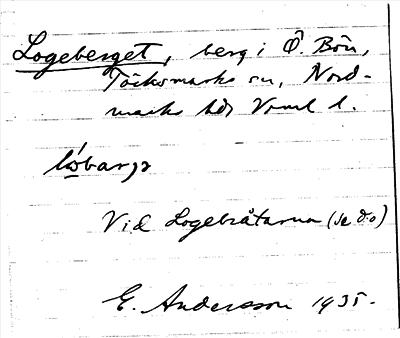 Logeberget, berg i Ö. Bön,
Töcksmarks sn, Nord-
marks hd, Vrml l.
Vid Logebråtarna (se d:o)
E. Andersson 1935.